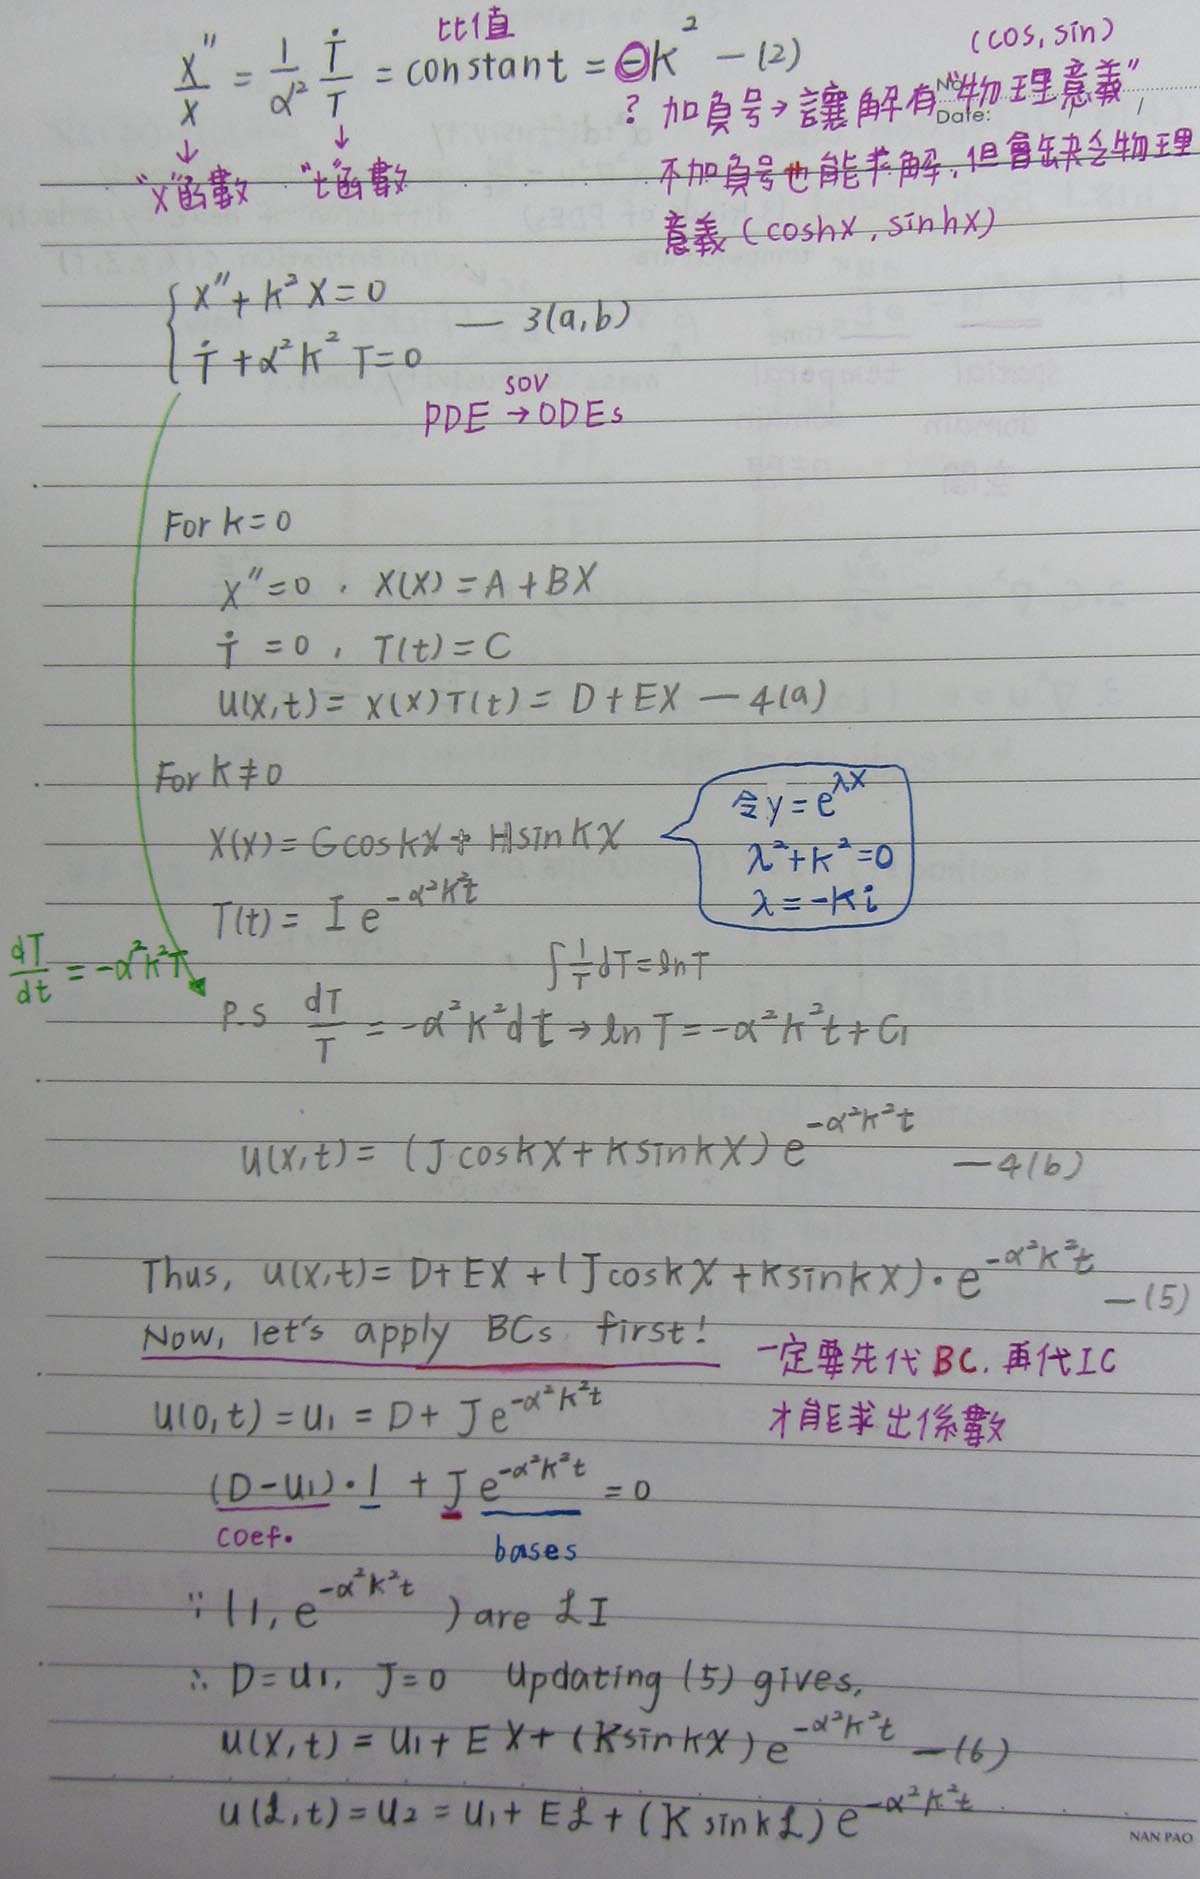 比值
X''/X = 1/α² Ṫ/T = constant = ⊖K² —(2)
(cos, sin)
? 加負号→讓解有"物理意義"
No.
Date: / /
"X"函數 "t"函數
不加負号也能求解,但會缺乏物理
意義(coshX, sinhX)
X''+k²X=0
— 3(a,b)
Ṫ+α²K²T=0
SOV
PDE → ODEs
For k=0
X''=0, X(X)=A+BX
Ṫ=0, T(t)=C
U(X,t)=X(X)T(t)=D+EX —4(a)
For K≠0
X(X)=GcosKX+HsinKX
令y=e^λX
λ²+K²=0
λ=-Ki
T(t)= I e^-α²K²t
dT/dt = -α²K²T
∫1/T dT=lnT
P.S dT/T = -α²K²dt → ln T=-α²K²t+C₁
U(X,t)=(JcoskX+KsinkX)e^-α²K²t —4(b)
Thus, U(X,t)=D+EX+(JcoskX+KsinkX)·e^-α²K²t —(5)
Now, let's apply BCs first!
一定要先代BC.再代IC
才能求出係數
U(0,t)=U₁=D+Je^-α²K²t
(D-U₁)·1 + J e^-α²K²t =0
coef. bases
∵ (1, e^-α²K²t) are LI
∴ D=U₁, J=0 Updating (5) gives,
U(X,t)=U₁+EX+(KsinkX)e^-α²K²t —(6)
U(L,t)=U₂=U₁+EL+(KsinkL)e^-α²K²t
NAN PAO